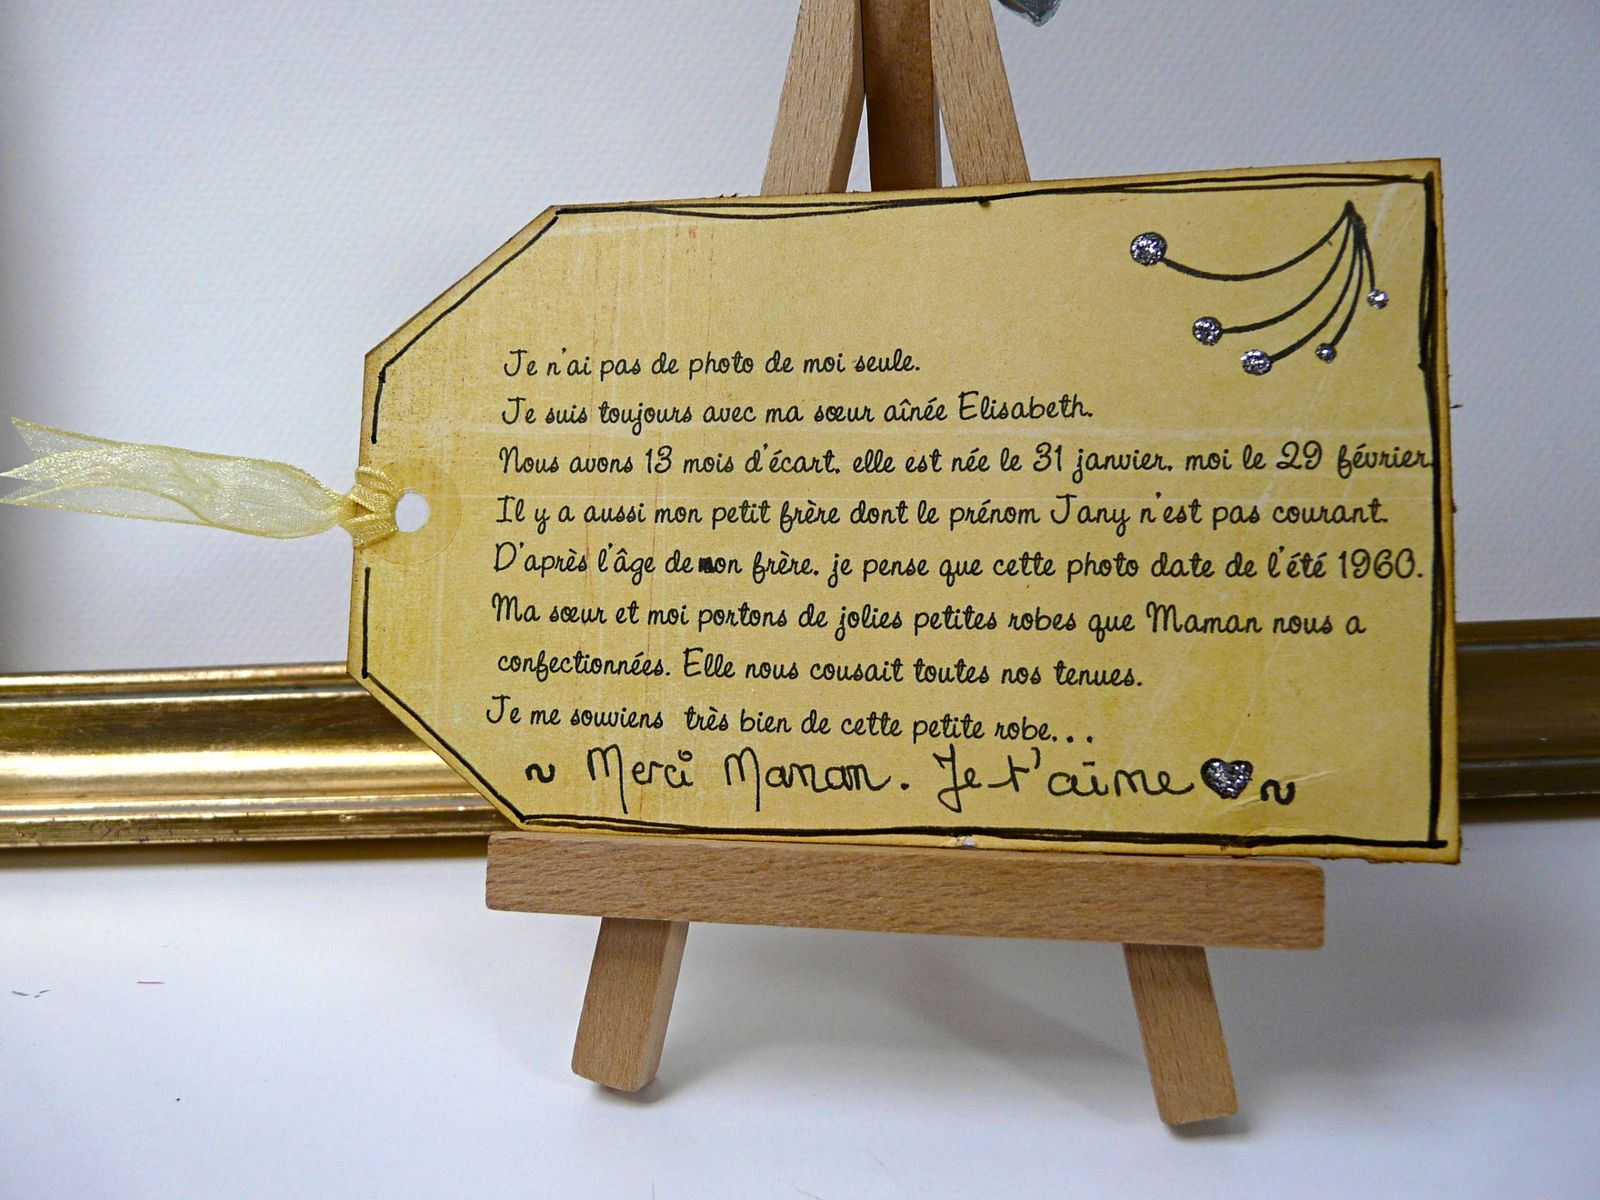 Je n'ai pas de photo de moi seule.
Je suis toujours avec ma sœur aînée Elisabeth.
Nous avons 13 mois d'écart, elle est née le 31 janvier, moi le 29 février.
Il y a aussi mon petit frère dont le prénom Jany n'est pas courant.
D'après l'âge de mon frère, je pense que cette photo date de l'été 1960.
Ma sœur et moi portons de jolies petites robes que Maman nous a
confectionnées. Elle nous cousait toutes nos tenues.
Je me souviens très bien de cette petite robe...
~ Merci Maman. Je t'aime ♥ ~